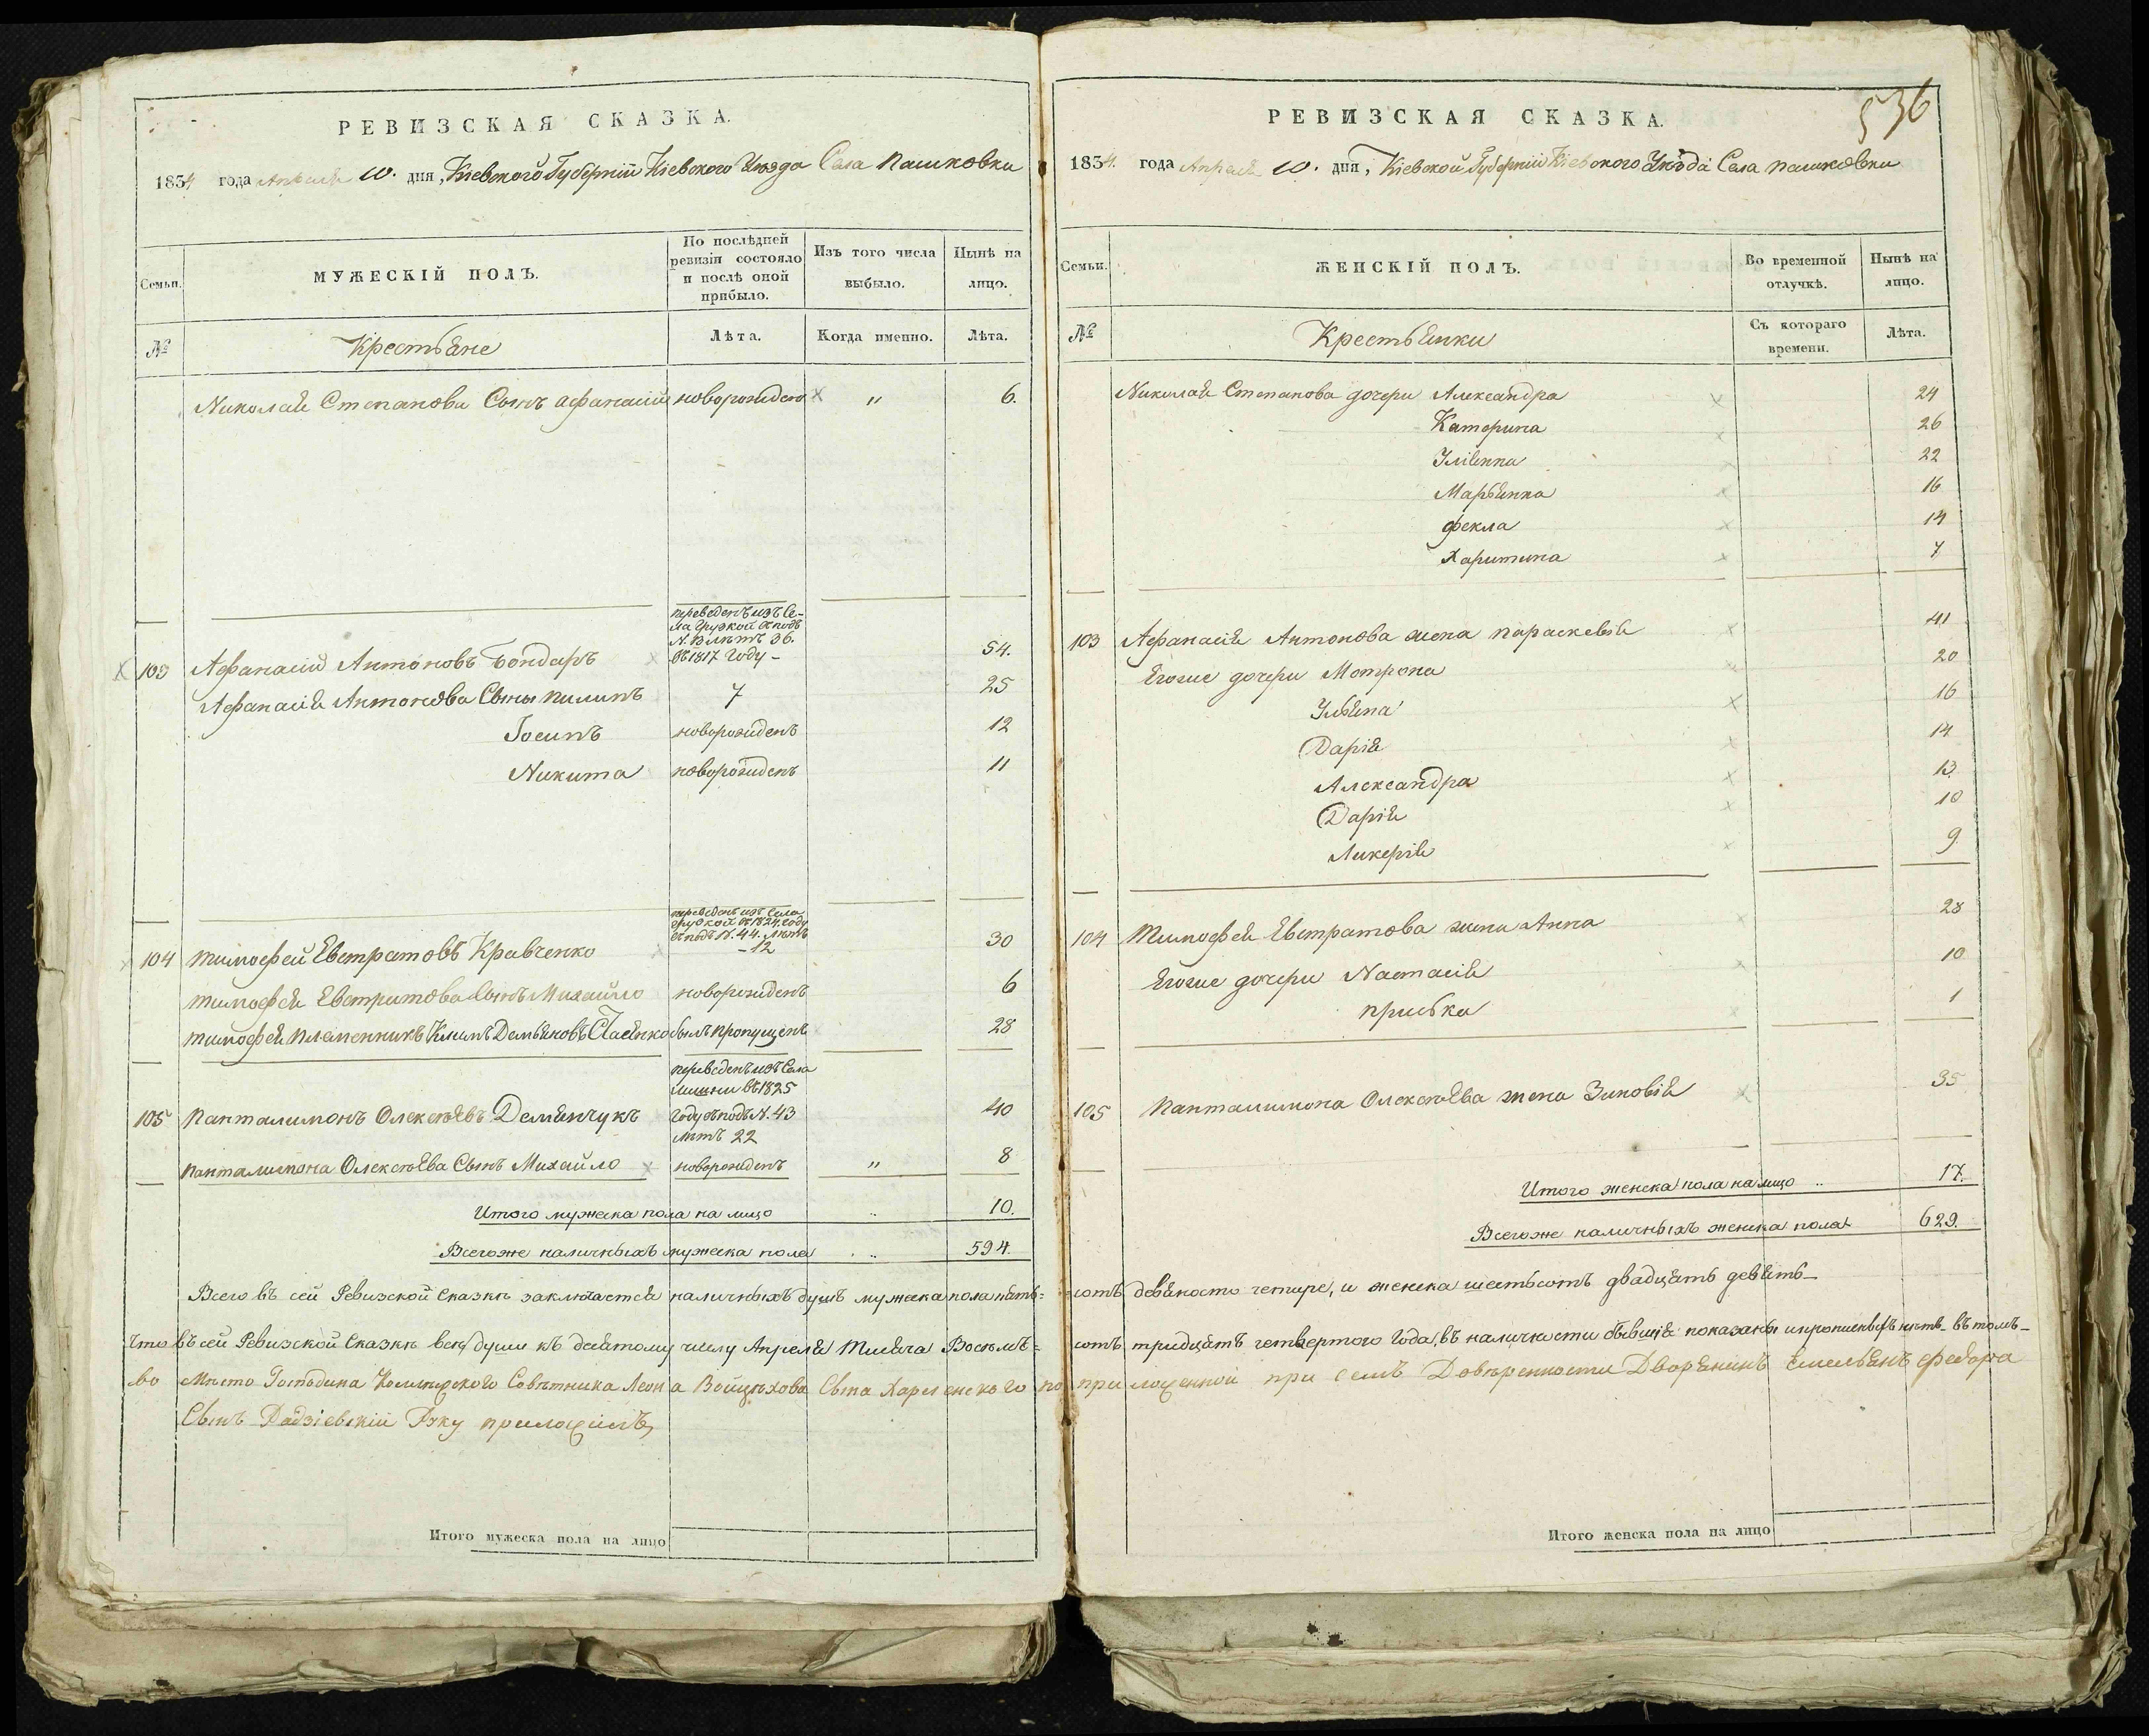 РЕВИЗСКАЯ СКАЗКА.
1834 года Апреля 10. дня, Кіевской Губерніи Кіевского Уѣзда Села Пашковки
Семьи.
МУЖЕСКІЙ ПОЛЪ.
По послѣдней ревизіи состояло и послѣ оной прибыло.
Изъ того числа выбыло.
Нынѣ на лицо.
№
Крестьяне
Лѣта.
Когда именно.
Лѣта.
Николая Степанова Сынъ Афанасий новорожденъ " 6.
переведенъ изъ Се-
ла Грузкой съ подъ
N. 13 лѣтъ 36.
въ 1817 году -
103 Афанасий Антоновъ Бондаръ 54.
Афанасія Антонова Сыны Пилипъ 7 25
Іосипъ новорожденъ 12
Никита новорожденъ 11
переведенъ изъ Села
Грузкой въ 1824 году
съ подъ N. 44. лѣтъ
- 12
104 Тимофей Евстратовъ Кравченко 30
Тимофея Евстратова Сынъ Михайло новорожденъ 6
Тимофея племенникъ Климъ Демьяновъ былъ пропущенъ 28
переведенъ изъ Села
въ 1825
году съ подъ N. 43
лѣтъ 22
105 Панталимонъ Олексѣевъ Демянчукъ 40
Панталимона Олексѣева Сынъ Михайло новорожденъ " 8
Итого мужеска пола на лицо .. 10.
Всего же наличныхъ мужеска пола .. 594.
Всего въ сей Ревизской Сказкѣ заключается наличныхъ душъ мужеска пола пять=
Что въ сей Ревизской Сказкѣ всѣ души къ десятому числу Апреля Тысяча Восемъ=
во Мѣсто Господина Совѣтника Леона Войцѣхова Сына по
Сынъ Радзіевскій Руку приложилъ
Итого мужеска пола на лицо
536
РЕВИЗСКАЯ СКАЗКА.
1834. года Апреля 10. дня, Кіевской Губерніи Кіевского Уѣзда Села Пашковки
Семьи.
ЖЕНСКІЙ ПОЛЪ.
Во временной отлучкѣ.
Нынѣ на лицо.
№
Крестьянки
Съ котораго времени.
Лѣта.
Николая Степанова дочери Александра 24
Каторина 26
Уліянна 22
Марьянна 16
Фекла 14
Харитина 7
103 Афанасія Антонова жена Параскевія 41
Егоже дочери Мотрона 20
Ульяна 16
Дарія 14
Александра 13
Дарія 10
Ликерія 9
104 Тимофея Евстратова жена Анна 28
Егоже дочери Настасія 10
Приська 1
105 Панталимона Олексѣева жена Зиновія 35
Итого женска пола на лицо .. 17.
Всего же наличныхъ женска пола 629.
сотъ девяносто четыре, и женска шестьсотъ двадцать девять-
сотъ тридцать четвертого года, въ наличности бывшія показаны и прописныхъ нѣтъ въ томъ-
приложенной при семъ Довѣренности Дворянинъ Емельянъ Федора
Итого женска пола на лицо